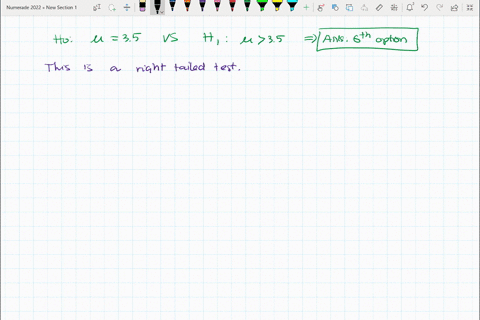 Numerade 2022 > New Section 1
Ho: μ = 3.5 vs H₁: μ > 3.5 ⇒ Ans. 6th option
This is a right tailed test.